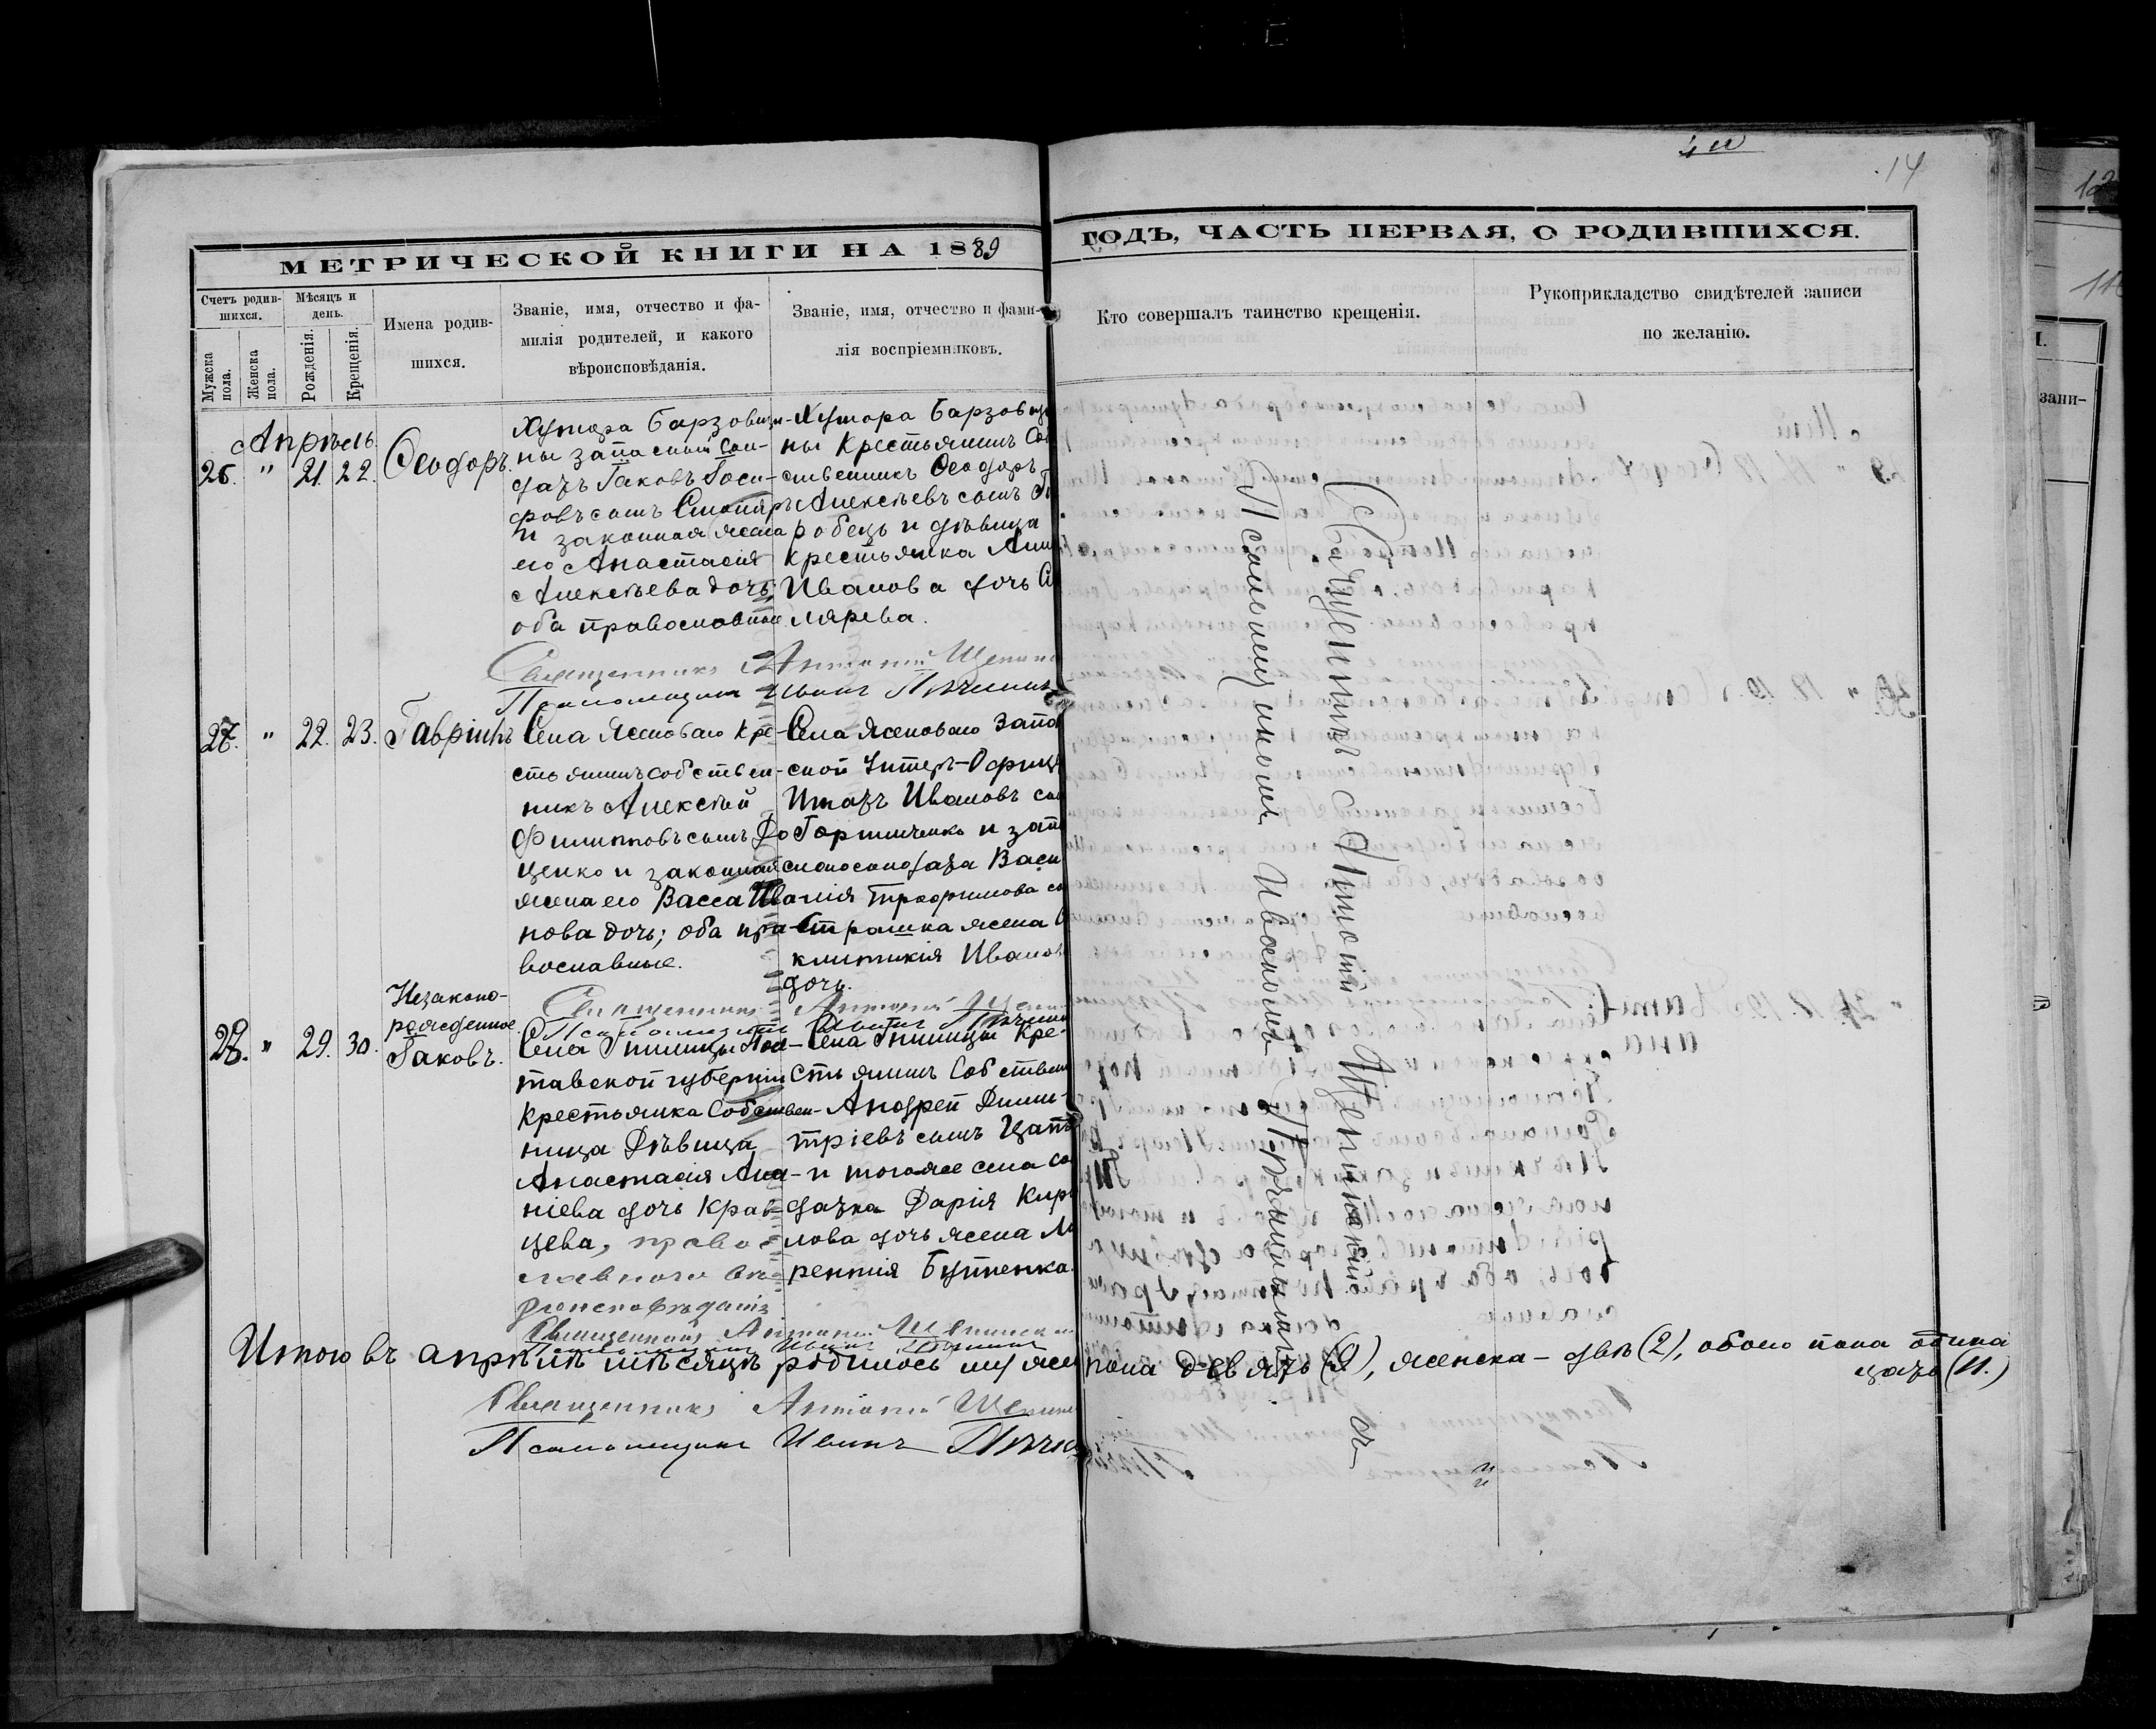 14
МЕТРИЧЕСКОЙ КНИГИ НА 1889
ГОДЪ, ЧАСТЬ ПЕРВАЯ, О РОДИВШИХСЯ.
Счетъ родив-
шихся.
Мужска
пола.
Женска
пола.
Мѣсяцъ и
день.
Рожденія.
Крещенія.
Имена родив-
шихся.
Званіе, имя, отчество и фа-
милія родителей, и какого
вѣроисповѣданія.
Званіе, имя, отчество и фами-
лія воспріемниковъ.
Кто совершалъ таинство крещенія.
Рукоприкладство свидѣтелей записи
по желанію.
Апрѣль.
26. " 21. 22. Ѳеодоръ.
Хутора Барзовщи-
ны запасный сол-
датъ Іаковъ Іоси-
фовъ сынъ
и законная жена
его Анастасія
Алексѣева дочь
оба православные
Хутора Барзовщи
ны Крестьянинъ Соб
ственникъ Ѳеодоръ
Алексѣевъ сынъ
робецъ и дѣвица
крестьянка Анн
Иванова дочь
лярева.
Священникъ Антоній
Псаломщикъ Иванъ
27. " 22. 23. Гавріилъ
Села Ясеноваго Кре-
стьянинъ собствен-
никъ Алексѣй
Филипповъ сынъ До
ценко и законная
жена его Васса Ива
нова дочь; оба пра-
вославные.
Села Ясеноваго Запа
сной Унтеръ-Офице
Игнатъ Ивановъ сын
Горпинченко и запа
сногосолдата Васи
лія Трофимова сы
Страшка жена
клитикія Иванов
дочь.
Священникъ Антоній
Псаломщикъ Иванъ
28. " 29. 30.
Незаконо-
рожденное
Іаковъ.
Села Гнилицы Пол-
тавской губерніи
Крестьянка Собствен-
ница Дѣвица
Анастасія Ана-
ніева дочь Крав-
цева, право-
славного вѣ-
роисповѣданія
Села Гнилицы Кре-
стьянинъ Собствен
Андрей Дими-
тріевъ сынъ Цапъ
и тогоже села сол
датка Дарія Кири
лова дочь жена
рентія Бутенка.
Священникъ Антоній
Псаломщикъ Иванъ
Священникъ Антоній
Псаломщикъ Иванъ
Итого въ апрѣлѣ мѣсяцѣ родилось муже пола девять (9), женска - двѣ (2), обоего пола одина
цать (11.)
Священникъ Антоній
Псаломщикъ Иванъ